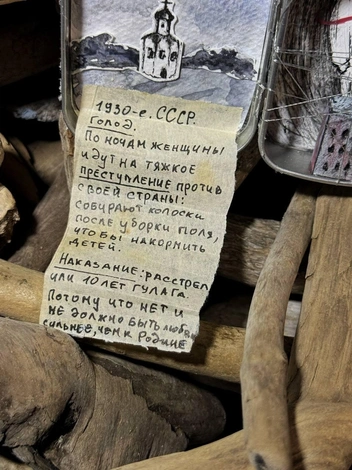 1930-е. СССР.
Голод.
По ночам женщины
идут на тяжкое
преступление против
своей страны:
собирают колоски
после уборки поля,
чтобы накормить
детей.
Наказание: расстрел
или 10 лет ГУЛАГа.
Потому что нет и
не должно быть любви
сильнее, чем к Родине